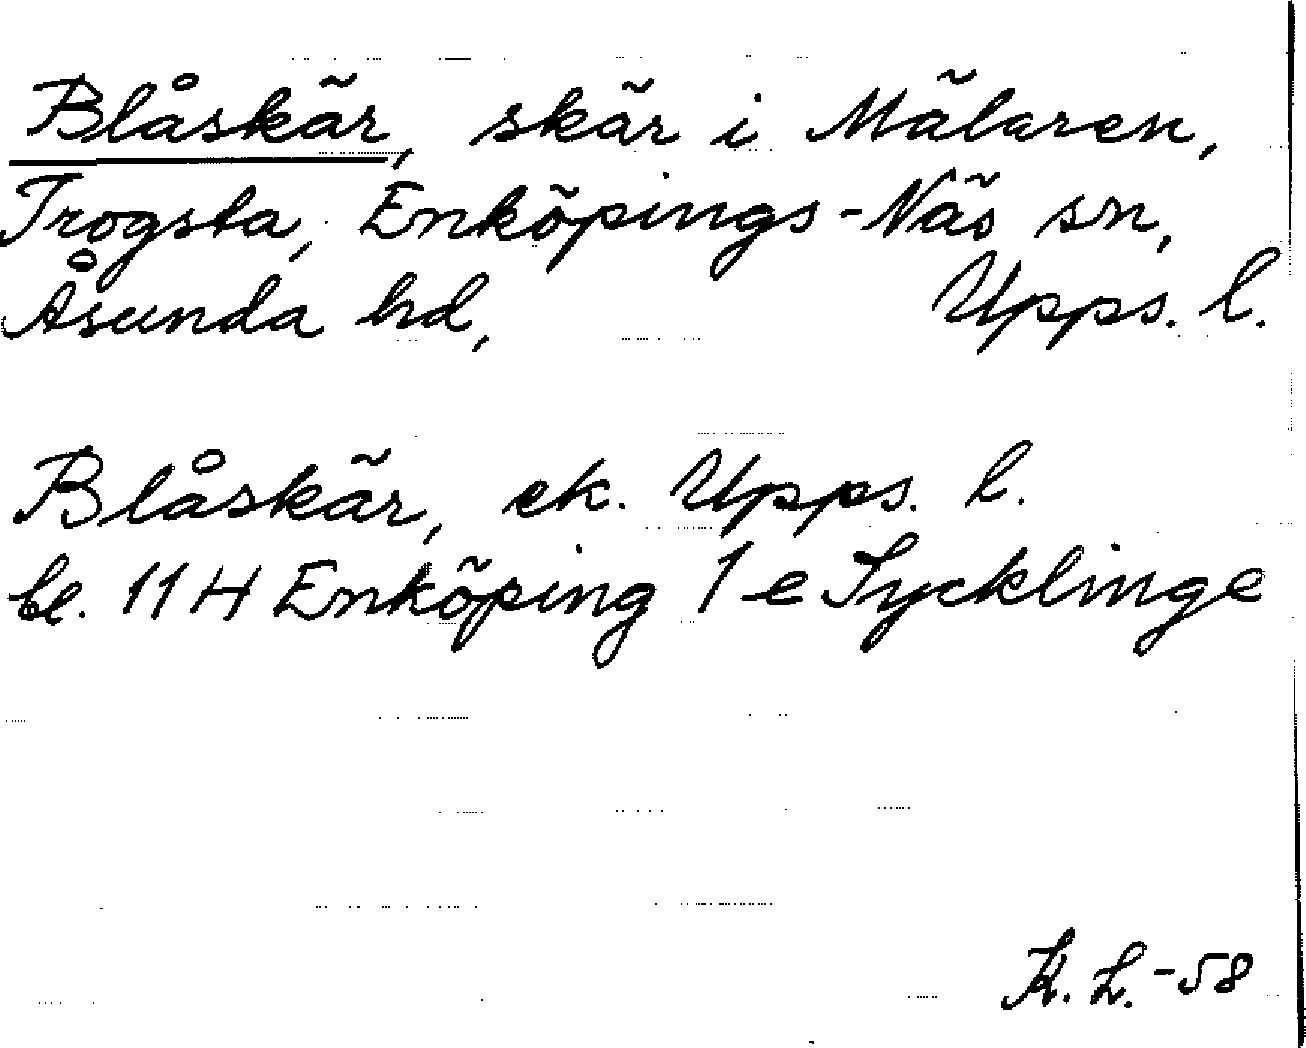 Blåskär, skär i Mälaren,
Trogsta, Enköpings-Näs sn,
Åsunda hd, Upps. l.
Blåskär, ek. Upps. l.
bl. 11 H Enköping 1 e Lycklinge
K. L. -58